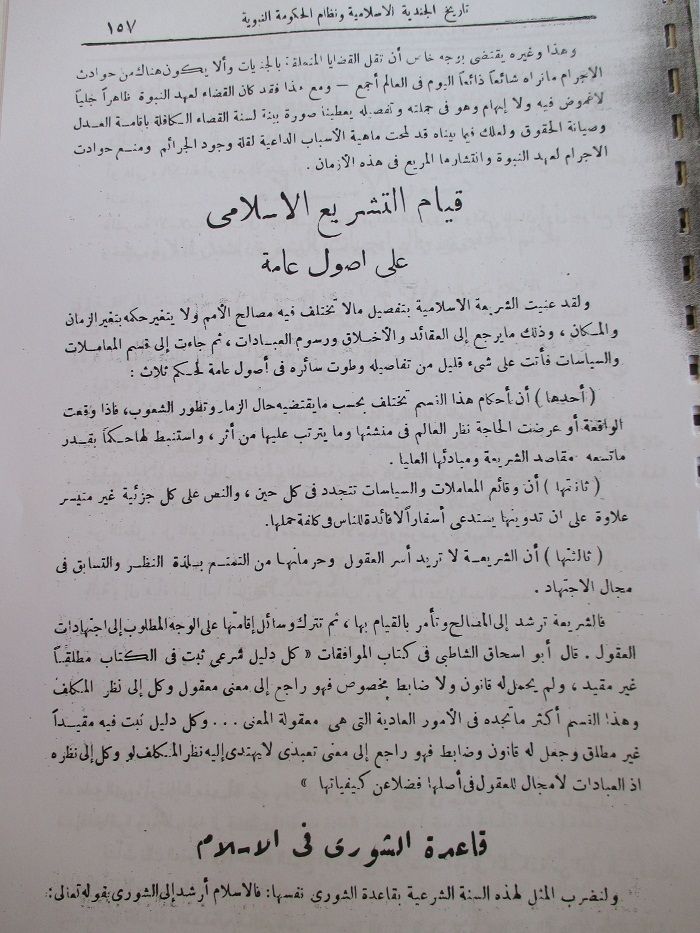 تاريخ الجندية الاسلامية ونظام الحكومة النبوية
١٥٧
وهذا وغيره يقتضى بوجه خاص أن تقل القضايا المتعلقة بالجنايات وألا يكون هناك من حوادث
الاجرام مانراه شائعاً ذائعاً اليوم فى العالم أجمع — ومع هذا فقد كان القضاء لعهد النبوة ظاهراً جلياً
لاغموض فيه ولا إبهام وهو فى جملته وتفصيله يعطينا صورة بينة لسنة القضاء الكافلة باقامة العدل
وصيانة الحقوق ولعلك فيما بيناه قد لمحت ماهية الأسباب الداعية لقلة وجود الجرائم ومنع حوادث
الاجرام لعهد النبوة وانتشارها المريع فى هذه الأزمان .
قيام التشريع الاسلامى
على اصول عامة
ولقد عنيت الشريعة الاسلامية بتفصيل مالا تختلف فيه مصالح الأمم ولا يتغير حكمه بتغير الزمان
والمكان ، وذلك مايرجع إلى العقائد والأخلاق ورسوم العبادات ، ثم جاءت إلى قسم المعاملات
والسياسات فأتت على شىء قليل من تفاصيله وطوت سائره فى أصول عامة لحكم ثلاث :
( أحدها ) أن أحكام هذا القسم تختلف بحسب مايقتضيه حال الزمان وتطور الشعوب، فاذا وقعت
الواقعة أو عرضت الحاجة نظر العالم فى منشئها وما يترتب عليها من أثر ، واستنبط لها حكما بقدر
ماتسعه مقاصد الشريعة ومبادئها العليا .
( ثانيتها ) أن وقائع المعاملات والسياسات تتجدد فى كل حين ، والنص على كل جزئية غير متيسر
علاوة على ان تدوينها يستدعى أسفاراً لا فائدة للناس فى كلفة حملها.
( ثالثتها ) أن الشريعة لا تريد أسر العقول وحرمانها من التمتع بلذة النظر والتسابق فى
مجال الاجتهاد .
فالشريعة ترشد إلى المصالح وتأمر بالقيام بها ، ثم تترك وسائل إقامتها على الوجه المطلوب إلى اجتهادات
العقول . قال أبو اسحاق الشاطبى فى كتاب الموافقات « كل دليل شرعى ثبت فى الكتاب مطلقاً
غير مقيد ، ولم يجعل له قانون ولا ضابط مخصوص فهو راجع إلى معنى معقول وكل إلى نظر المكلف
وهذا القسم أكثر ماتجده فى الأمور العادية التى هى معقولة المعنى ... وكل دليل ثبت فيه مقيداً
غير مطلق وجعل له قانون وضابط فهو راجع إلى معنى تعبدى لايهتدى إليه نظر المكلف لو وكل إلى نظره
اذ العبادات لامجال للعقول فى أصلها فضلا عن كيفياتها »
قاعدة الشورى فى الاسلام
ولنضرب المثل لهذه السنة الشرعية بقاعدة الشورى نفسها: فالاسلام أرشد إلى الشورى بقوله تعالى: